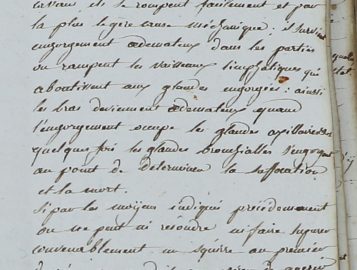 et se rompent facilement et par
la plus légère cause méchanique; il survient
engorgement œdemateux dans les parties
ou rampent les vaisseaux limphatiques qui
aboutissent aux glandes engorgées: ainsi
les bras deviennent œdemateux quand
l'engorgement occupe les glandes axillaires
quelque fois les glandes bronchialles s'engorgent
au point de determiner la suffocation
et la mort.
Si par les moijens indiqué précédemment
on ne peut ni résoudre ni faire supurer
convenablement un squirre au premier